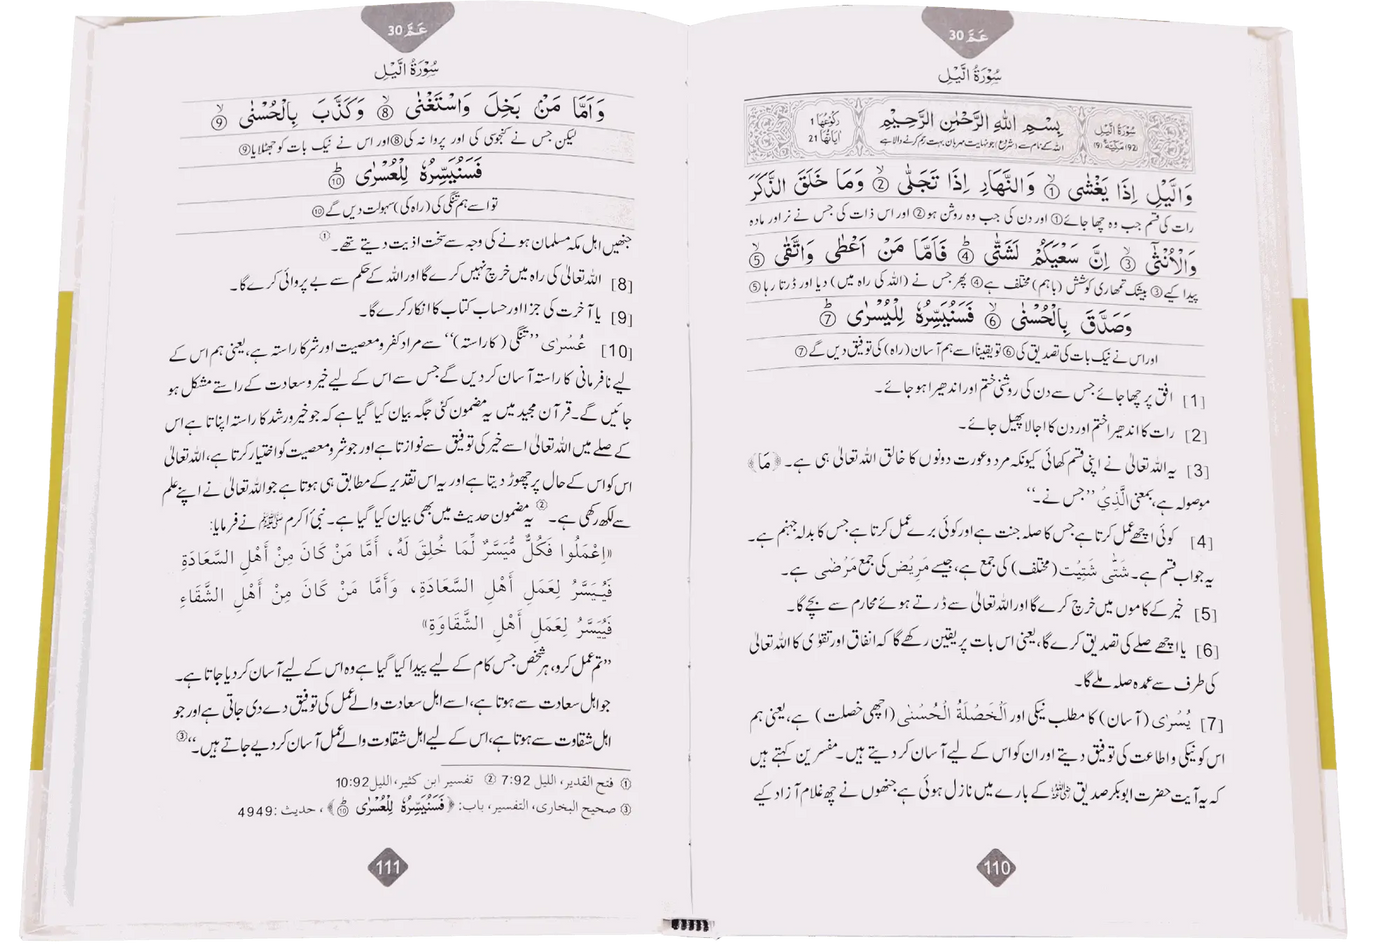 عَمَّ 30
سُوْرَةُ الَّيْلِ
سُوْرَةُ الَّيْلِ
(92) مَكِّيَّةٌ (9)
بِسْمِ اللهِ الرَّحْمٰنِ الرَّحِيْمِ
اللہ کے نام سے (شروع) جو نہایت مہربان بہت رحم کرنے والا ہے
رُكُوْعُهَا 1
اٰيَاتُهَا 21
وَالَّيْلِ اِذَا يَغْشٰى ① وَالنَّهَارِ اِذَا تَجَلّٰى ② وَمَا خَلَقَ الذَّكَرَ
رات کی قسم جب وہ چھا جائے① اور دن کی جب وہ روشن ہو② اور اس ذات کی جس نے نر اور مادہ
وَالْاُنْثٰٓى ③ اِنَّ سَعْيَكُمْ لَشَتّٰى ④ فَاَمَّا مَنْ اَعْطٰى وَاتَّقٰى ⑤
پیدا کیے③ بیشک تمھاری کوشش (باہم) مختلف ہے④ پھر جس نے (اللہ کی راہ میں) دیا اور ڈرتا رہا⑤
وَصَدَّقَ بِالْحُسْنٰى ⑥ فَسَنُيَسِّرُهٗ لِلْيُسْرٰى ⑦
اور اس نے نیک بات کی تصدیق کی⑥ تو یقیناً اسے ہم آسان (راہ) کی توفیق دیں گے⑦
[1] افق پر چھا جائے جس سے دن کی روشنی ختم اور اندھیرا ہو جائے۔
[2] رات کا اندھیرا ختم اور دن کا اجالا پھیل جائے۔
[3] یہ اللہ تعالیٰ نے اپنی قسم کھائی کیونکہ مرد و عورت دونوں کا خالق اللہ تعالیٰ ہی ہے۔ ﴿مَا﴾
موصولہ ہے بمعنی الَّذِيْ ”جس نے۔“
[4] کوئی اچھے عمل کرتا ہے جس کا صلہ جنت ہے اور کوئی برے عمل کرتا ہے جس کا بدلہ جہنم ہے۔
یہ جواب قسم ہے۔ شَتّٰى شَتِيْت (مختلف) کی جمع ہے، جیسے مَرِيْض کی جمع مَرْضٰى ہے۔
[5] خیر کے کاموں میں خرچ کرے گا اور اللہ تعالیٰ سے ڈرتے ہوئے محارم سے بچے گا۔
[6] یا اچھے صلے کی تصدیق کرے گا، یعنی اس بات پر یقین رکھے گا کہ انفاق اور تقوٰی کا اللہ تعالیٰ
کی طرف سے عمدہ صلہ ملے گا۔
[7] يُسْرٰى (آسان) کا مطلب نیکی اور اَلْخَصْلَةُ الْحُسْنٰى (اچھی خصلت) ہے، یعنی ہم
اس کو نیکی و اطاعت کی توفیق دیتے اور ان کو اس کے لیے آسان کر دیتے ہیں۔ مفسرین کہتے ہیں
کہ یہ آیت حضرت ابوبکر صدیق رضی اللہ عنہ کے بارے میں نازل ہوئی ہے جنھوں نے چھ غلام آزاد کیے
110
عَمَّ 30
سُوْرَةُ الَّيْلِ
وَاَمَّا مَنْ بَخِلَ وَاسْتَغْنٰى ⑧ وَكَذَّبَ بِالْحُسْنٰى ⑨
لیکن جس نے کنجوسی کی اور پروا نہ کی⑧ اور اس نے نیک بات کو جھٹلایا⑨
فَسَنُيَسِّرُهٗ لِلْعُسْرٰى ⑩
تو اسے ہم تنگی کی (راہ کی) سہولت دیں گے⑩
جنھیں اہل مکہ مسلمان ہونے کی وجہ سے سخت اذیت دیتے تھے۔①
[8] اللہ تعالیٰ کی راہ میں خرچ نہیں کرے گا اور اللہ کے حکم سے بے پروائی کرے گا۔
[9] یا آخرت کی جزا اور حساب کتاب کا انکار کرے گا۔
[10] عُسْرٰى ”تنگی (کا راستہ)“ سے مراد کفر و معصیت اور شر کا راستہ ہے، یعنی ہم اس کے
لیے نافرمانی کا راستہ آسان کر دیں گے جس سے اس کے لیے خیر و سعادت کے راستے مشکل ہو
جائیں گے۔ قرآن مجید میں یہ مضمون کئی جگہ بیان کیا گیا ہے کہ جو خیر و رشد کا راستہ اپناتا ہے اس
کے صلے میں اللہ تعالیٰ اسے خیر کی توفیق سے نوازتا ہے اور جو شر و معصیت کو اختیار کرتا ہے، اللہ تعالیٰ
اس کو اس کے حال پر چھوڑ دیتا ہے اور یہ اس تقدیر کے مطابق ہی ہوتا ہے جو اللہ تعالیٰ نے اپنے علم
سے لکھ رکھی ہے۔② یہ مضمون حدیث میں بھی بیان کیا گیا ہے۔ نبیٔ اکرم ﷺ نے فرمایا:
«اِعْمَلُوا فَكُلٌّ مُّيَسَّرٌ لِّمَا خُلِقَ لَهُ، أَمَّا مَنْ كَانَ مِنْ أَهْلِ السَّعَادَةِ
فَيُيَسَّرُ لِعَمَلِ أَهْلِ السَّعَادَةِ، وَأَمَّا مَنْ كَانَ مِنْ أَهْلِ الشَّقَاءِ
فَيُيَسَّرُ لِعَمَلِ أَهْلِ الشَّقَاوَةِ»
”تم عمل کرو، ہر شخص جس کام کے لیے پیدا کیا گیا ہے وہ اس کے لیے آسان کر دیا جاتا ہے۔
جو اہل سعادت سے ہوتا ہے، اسے اہل سعادت والے عمل کی توفیق دے دی جاتی ہے اور جو
اہل شقاوت سے ہوتا ہے، اس کے لیے اہل شقاوت والے عمل آسان کر دیے جاتے ہیں۔“③
① فتح القدير، الليل 7:92 ② تفسير ابن كثير، الليل 10:92
③ صحيح البخاري، التفسير، باب: ﴿فَسَنُيَسِّرُهٗ لِلْعُسْرٰى ⑩﴾، حديث: 4949
111